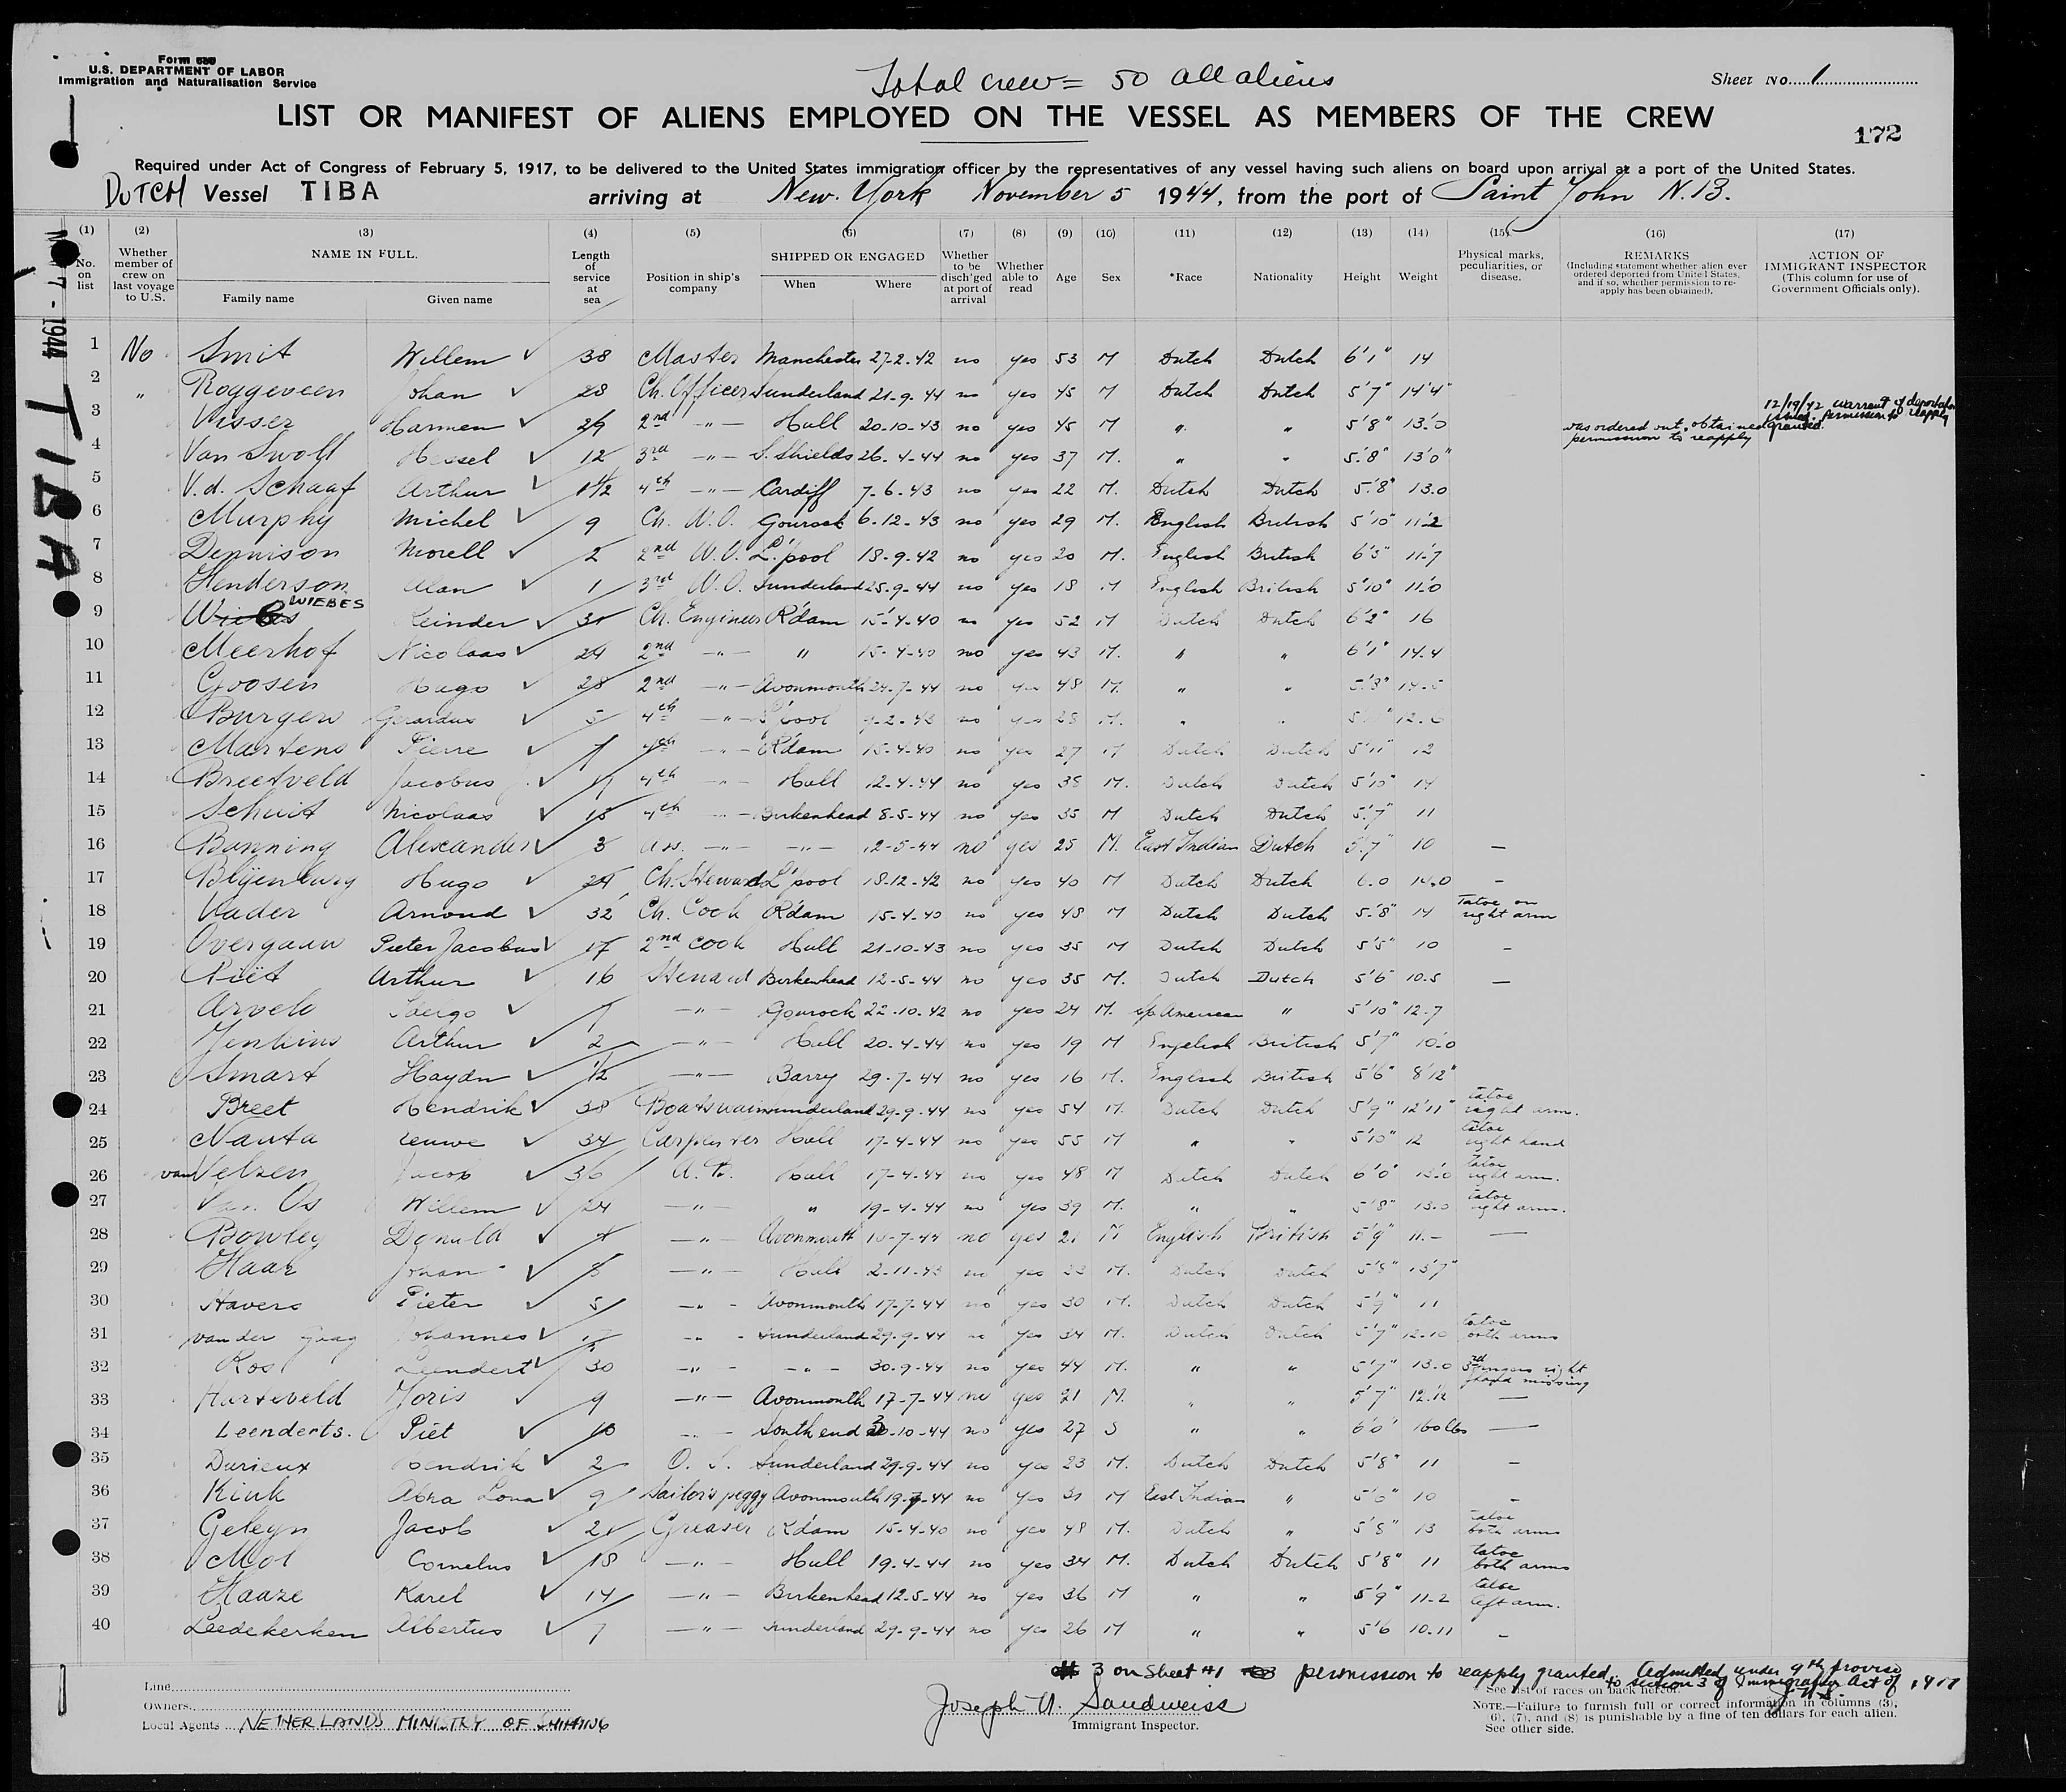 Form 680
U.S. DEPARTMENT OF LABOR
Immigration and Naturalisation Service
Total crew = 50 all aliens
Sheet No. 1
LIST OR MANIFEST OF ALIENS EMPLOYED ON THE VESSEL AS MEMBERS OF THE CREW
172
Required under Act of Congress of February 5, 1917, to be delivered to the United States immigration officer by the representatives of any vessel having such aliens on board upon arrival at a port of the United States.
DUTCH Vessel TIBA arriving at New York November 5 1944, from the port of Saint John N.B.
(1) (2) (3) (4) (5) (6) (7) (8) (9) (10) (11) (12) (13) (14) (15) (16) (17)
No. on list
Whether member of crew on last voyage to U.S.
NAME IN FULL.
Family name
Given name
Length of service at sea
Position in ship's company
SHIPPED OR ENGAGED
When
Where
Whether to be disch'ged at port of arrival
Whether able to read
Age
Sex
*Race
Nationality
Height
Weight
Physical marks, peculiarities, or disease.
REMARKS
(Including statement whether alien ever ordered deported from United States, and if so, whether permission to re-apply has been obtained).
ACTION OF IMMIGRANT INSPECTOR
(This column for use of Government Officials only).
1944
TIBA
1 No Smit Willem ✓ 38 Master Manchester 27-2-42 no yes 53 M Dutch Dutch 6'1" 14
2 " Roggeveen Johan ✓ 28 Ch. Officer Sunderland 21-9-44 no yes 45 M Dutch Dutch 5'7" 14'4"
3 Visser Harmen ✓ 29 2nd -"- Hull 20-10-43 no yes 45 M " " 5'8" 13.0 was ordered out, obtained permission to reapply 12/19/42 warrant of deportation issued. Permission to reapply granted.
4 Van Swoll Hessel ✓ 12 3rd -"- S. Shields 26-4-44 no yes 37 M. " " 5'8" 13'0"
5 V.d. Schaaf Arthur ✓ 1½ 4th -"- Cardiff 7-6-43 no yes 22 M. Dutch Dutch 5'8" 13.0
6 Murphy Michel ✓ 9 Ch. W.O. Gourock 6-12-43 no yes 29 M. English British 5'10" 11'2
7 Dennison Morell ✓ 2 2nd W.O. L'pool 18-9-42 no yes 20 M. English British 6'3" 11'7
8 Henderson Alan ✓ 1 3rd W.O. Sunderland 25-9-44 no yes 18 M English British 5'10" 11'0
9 WIEBES Reinder ✓ Ch. Engineer R'dam 15-4-40 no yes 52 M Dutch Dutch 6'2" 16
10 Meerhof Nicolaas ✓ 24 2nd -"- " 15-4-40 no yes 43 M. " " 6'1" 14.4
11 Goosen Hugo ✓ 28 2nd -"- Avonmouth 24-7-44 no yes 48 M. " "
12 Burgers Gerardus ✓ 5 4th -"- L'pool no yes 28 M. " "
13 Martens Pierre ✓ 4th -"- R'dam 15-4-40 no yes 27 M Dutch Dutch 5'11" 12
14 Breetveld Jacobus ✓ 4th -"- Hull 12-4-44 no yes 38 M. Dutch Dutch 5'10" 14
15 Schuit Nicolaas ✓ 15 4th -"- Birkenhead 8-5-44 no yes 35 M Dutch Dutch 5'7" 11
16 Banning Alexander ✓ 3 Ass. -"- -"- 12-5-44 no yes 25 M. East Indian Dutch 5'7" 10 —
17 Blijenburg Hugo ✓ 24 Ch. Steward L'pool 18-12-42 no yes 40 M Dutch Dutch 6.0 14.0 –
18 Vader Arnond ✓ 32 Ch. Cook R'dam 15-4-40 no yes 48 M Dutch Dutch 5'8" 14 Tatoe on right arm
19 Overgaauw Pieter Jacobus ✓ 17 2nd cook Hull 21-10-43 no yes 35 M Dutch Dutch 5'5" 10 –
20 Arthur ✓ 16 Steward Birkenhead 12-5-44 no yes 35 M. Dutch Dutch 5'6" 10.5 —
21 Arvelo ✓ -"- Gourock 22-10-42 no yes 24 M. Sp. American " 5'10" 12.7
22 Jenkins Arthur ✓ 2 -"- Hull 20-4-44 no yes 19 M English British 5'7" 10.0
23 Smart Haydn ✓ ½ -"- Barry 29-7-44 no yes 16 M. English British 5'6" 8'12"
24 Breet Hendrik ✓ 38 Boatswain Sunderland 29-9-44 no yes 54 M. Dutch Dutch 5'9" 12'11" tatoe right arm.
25 Nauta ✓ 34 Carpenter Hull 17-4-44 no yes 55 M " " 5'10" 12 tatoe right hand
26 van Velzen Jacob ✓ 36 A.B. Hull 17-4-44 no yes 48 M Dutch Dutch 6'0" 13.0 tatoe right arm.
27 Van Os Willem ✓ 24 -"- " 19-4-44 no yes 39 M. " " 5'8" 13.0 tatoe right arm.
28 Bowley Donald ✓ -"- Avonmouth no yes 21 M English British 5'9" 11.- —
29 Haak Johan ✓ -"- Hull 2-11-43 no yes 23 M. Dutch Dutch 5'8" 13'7"
30 Havers Pieter ✓ 5 -"- Avonmouth 17-7-44 no yes 30 M. Dutch Dutch 5'9" 11
31 van der Gaag Johannes ✓ -"- Sunderland 29-9-44 no yes 34 M. Dutch Dutch 5'7" 12.10 tatoe both arms
32 Ros Leendert ✓ 30 -"- -"- 30-9-44 no yes 44 M. " " 5'7" 13.0 3rd fingers right hand missing
33 Harteveld Joris ✓ 9 -"- Avonmouth 17-7-44 no yes 21 M. " " 5'7" 12.12 —
34 Leenderts. Piet ✓ 10 -"- Southend 30-10-44 no yes 27 S " " 6'0" 160 lbs —
35 Durieux Hendrik ✓ 2 O.S. Sunderland 29-9-44 no yes 23 M. Dutch Dutch 5'8" 11 –
36 Kiuk Abra Loua ✓ 9 Sailor's peggy Avonmouth 19-7-44 no yes 31 M East Indian " 5'6" 10 –
37 Geleyn Jacob ✓ 21 Greaser R'dam 15-4-40 no yes 48 M. Dutch " 5'8" 13 tatoe both arms
38 Mol Cornelus ✓ 18 -"- Hull 19-4-44 no yes 34 M. Dutch Dutch 5'8" 11 tatoe both arms
39 Haaze Karel ✓ 14 -"- Birkenhead 12-5-44 no yes 36 M " " 5'9" 11-2 tatoe left arm.
40 Leedekerken Albertus ✓ 7 -"- Sunderland 29-9-44 no yes 26 M " " 5'6 10.11 –
3 on Sheet #1 permission to reapply granted. Admitted under 9th proviso
to section 3 of Immigration Act of 1917
Line
Owners
Local Agents NETHERLANDS MINISTRY OF SHIPPING
Joseph A. Sandweiss
Immigrant Inspector.
* See list of races on back hereof.
NOTE.—Failure to furnish full or correct information in columns (3), (6), (7), and (8) is punishable by a fine of ten dollars for each alien.
See other side.